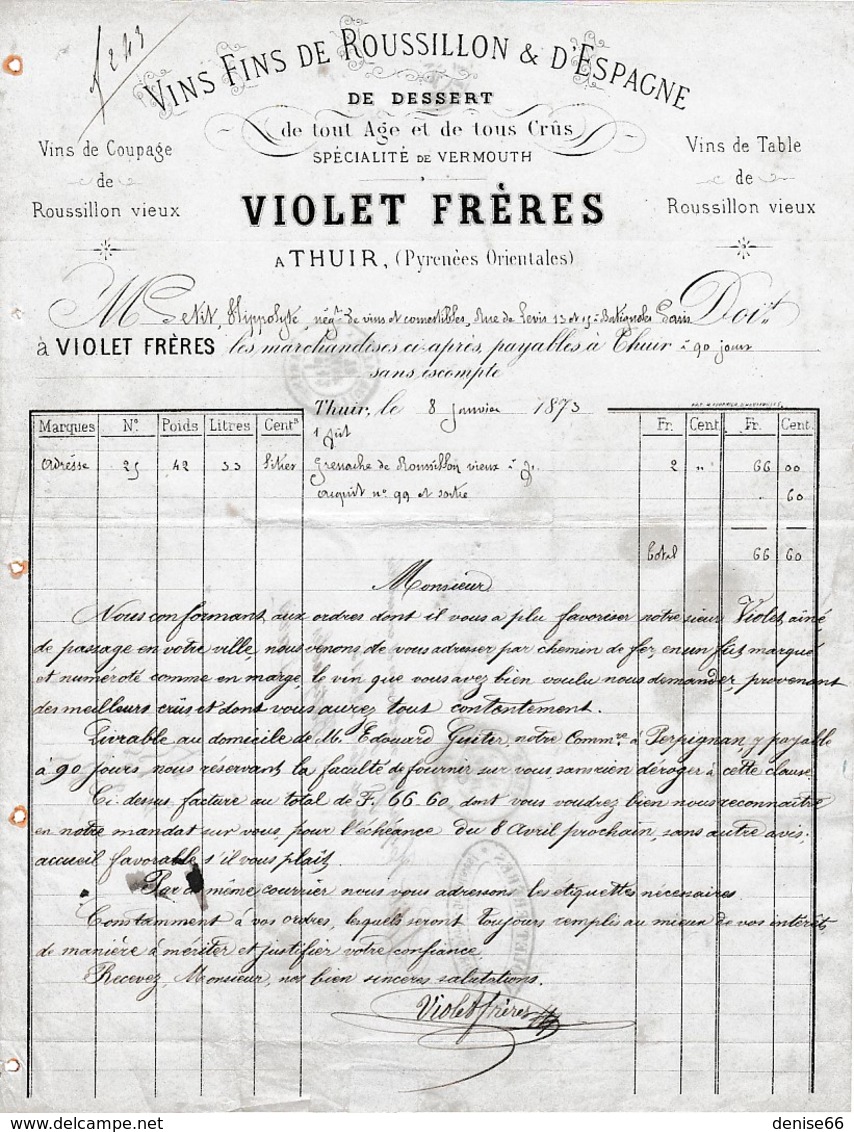 f 243
VINS FINS DE ROUSSILLON & D'ESPAGNE
DE DESSERT
de tout Age et de tous Crûs
SPÉCIALITÉ DE VERMOUTH
Vins de Coupage
de
Roussillon vieux
Vins de Table
de
Roussillon vieux
VIOLET FRÈRES
A THUIR, (Pyrenées Orientales)
M Petit, Hippolyte, négt de vins et comestibles, Rue de Levis 13 et 15 - Batignoles Paris Doit
à VIOLET FRÈRES les marchandises ci-après, payables à Thuir à 90 jours
sans escompte
Thuir, le 8 Janvier 1873
Marques No Poids Litres Cents Fr. Cent Fr. Cent.
1 fût
adresse 25 42 33 Grenache de Roussillon vieux à f. 2 " 66 00
acquit no 99 et sortie 60
Total 66 60
Monsieur
Nous conformant aux ordres dont il vous a plu favoriser notre sieur Violet, ainé,
de passage en votre ville, nous venons de vous adresser par chemin de fer, en un fût, marqué
et numéroté comme en marge, le vin que vous avez bien voulu nous demander, provenant
des meilleurs crûs et dont vous aurez tout contentement.
Livrable au domicile de M. Edouard Guiter, notre Commre à Perpignan, y payable
à 90 jours, nous réservant la faculté de fournir sur vous, sans rien déroger à cette clause.
Ci dessus facture au total de F. 66.60, dont vous voudrez bien nous reconnaitre
en notre mandat sur vous, pour l'échéance du 8 Avril prochain, sans autre avis;
accueil favorable s'il vous plaît.
Par ce même courrier nous vous adressons les étiquettes nécessaires.
Constamment à vos ordres, lesquels seront toujours remplis au mieux de vos intérêts,
de manière à mériter et justifier votre confiance.
Recevez, Monsieur, nos bien sinceres salutations.
Violet frères
denise66